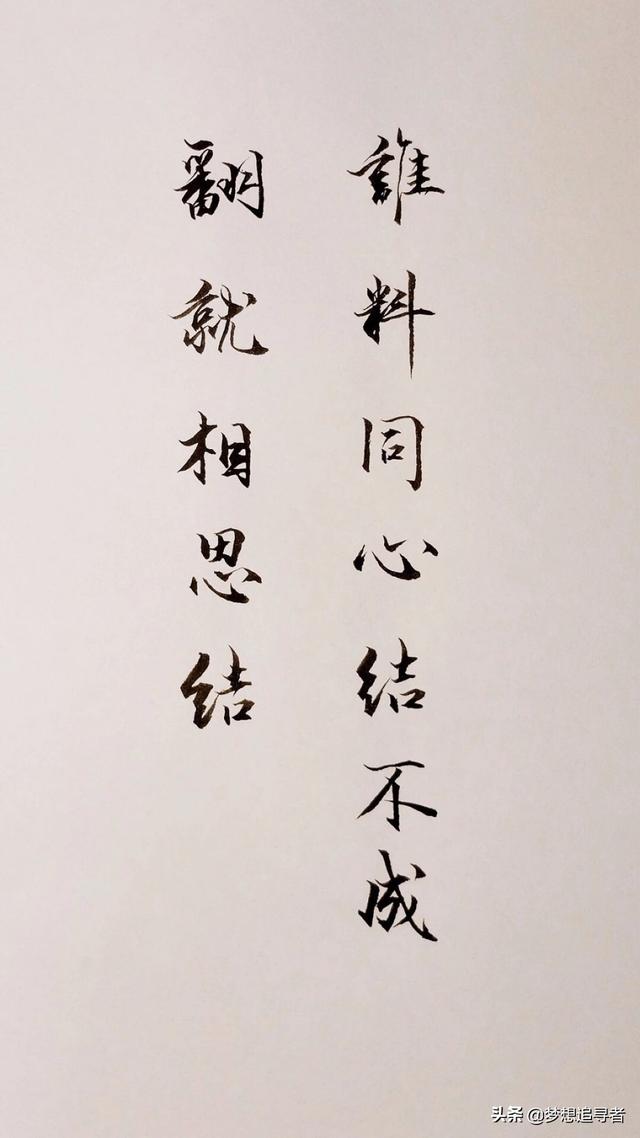 誰料同心结不成
翻就相思结
头条 @梦想追寻者